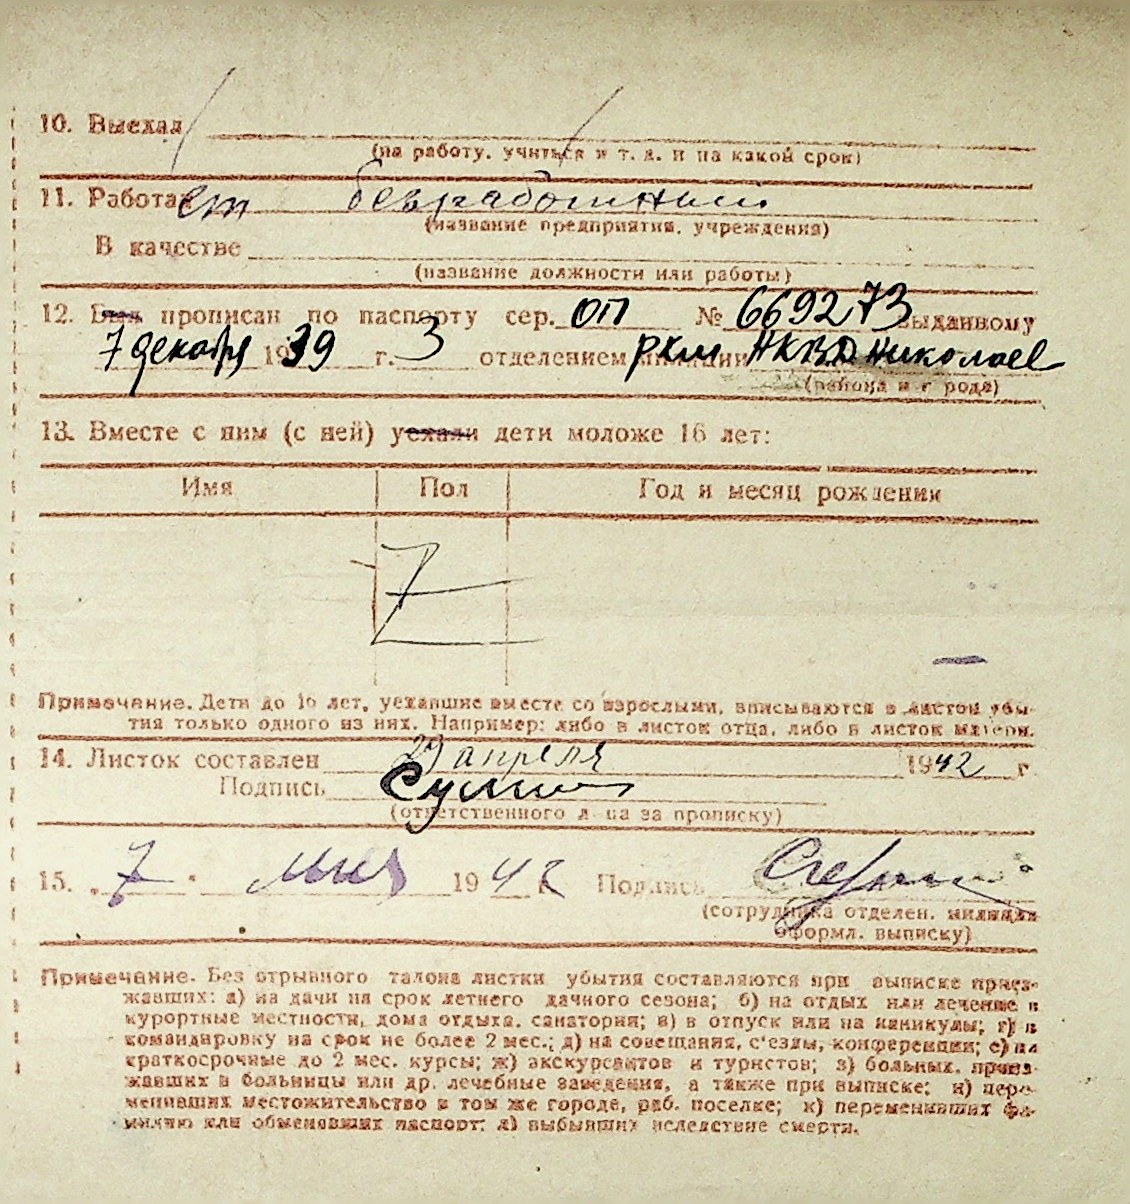 10. Выехал
(на работу, учиться и т. д. и на какой срок)
11. Работает безработный
(название предприятия, учреждения)
В качестве
(название должности или работы)
12. Был прописан по паспорту сер. ОП № 669273 выданному
7 декабря 1939 г. 3 отделением милиции РКМ НКВД Николаев
(района и города)
13. Вместе с ним (с ней) уехали дети моложе 16 лет:
Имя Пол Год и месяц рождения
Примечание. Дети до 16 лет, уехавшие вместе со взрослыми, вписываются в листок убы-
тия только одного из них. Например: либо в листок отца, либо в листок матери.
14. Листок составлен 29 апреля 1942 г.
Подпись
(ответственного лица за прописку)
15. "7" мая 1942 г. Подпись
(сотрудника отделен. милиции
оформл. выписку)
Примечание. Без отрывного талона листки убытия составляются при выписке приез-
жавших: а) на дачи на срок летнего дачного сезона; б) на отдых или лечение в
курортные местности, дома отдыха, санатории; в) в отпуск или на каникулы; г) в
командировку на срок не более 2 мес.; д) на совещания, с'езды, конференции; е) на
краткосрочные до 2 мес. курсы; ж) экскурсантов и туристов; з) больных, приез-
жавших в больницы или др. лечебные заведения, а также при выписке; и) пере-
менивших местожительство в том же городе, раб. поселке; к) переменивших фа-
милию или обменявших паспорт; л) выбывших вследствие смерти.